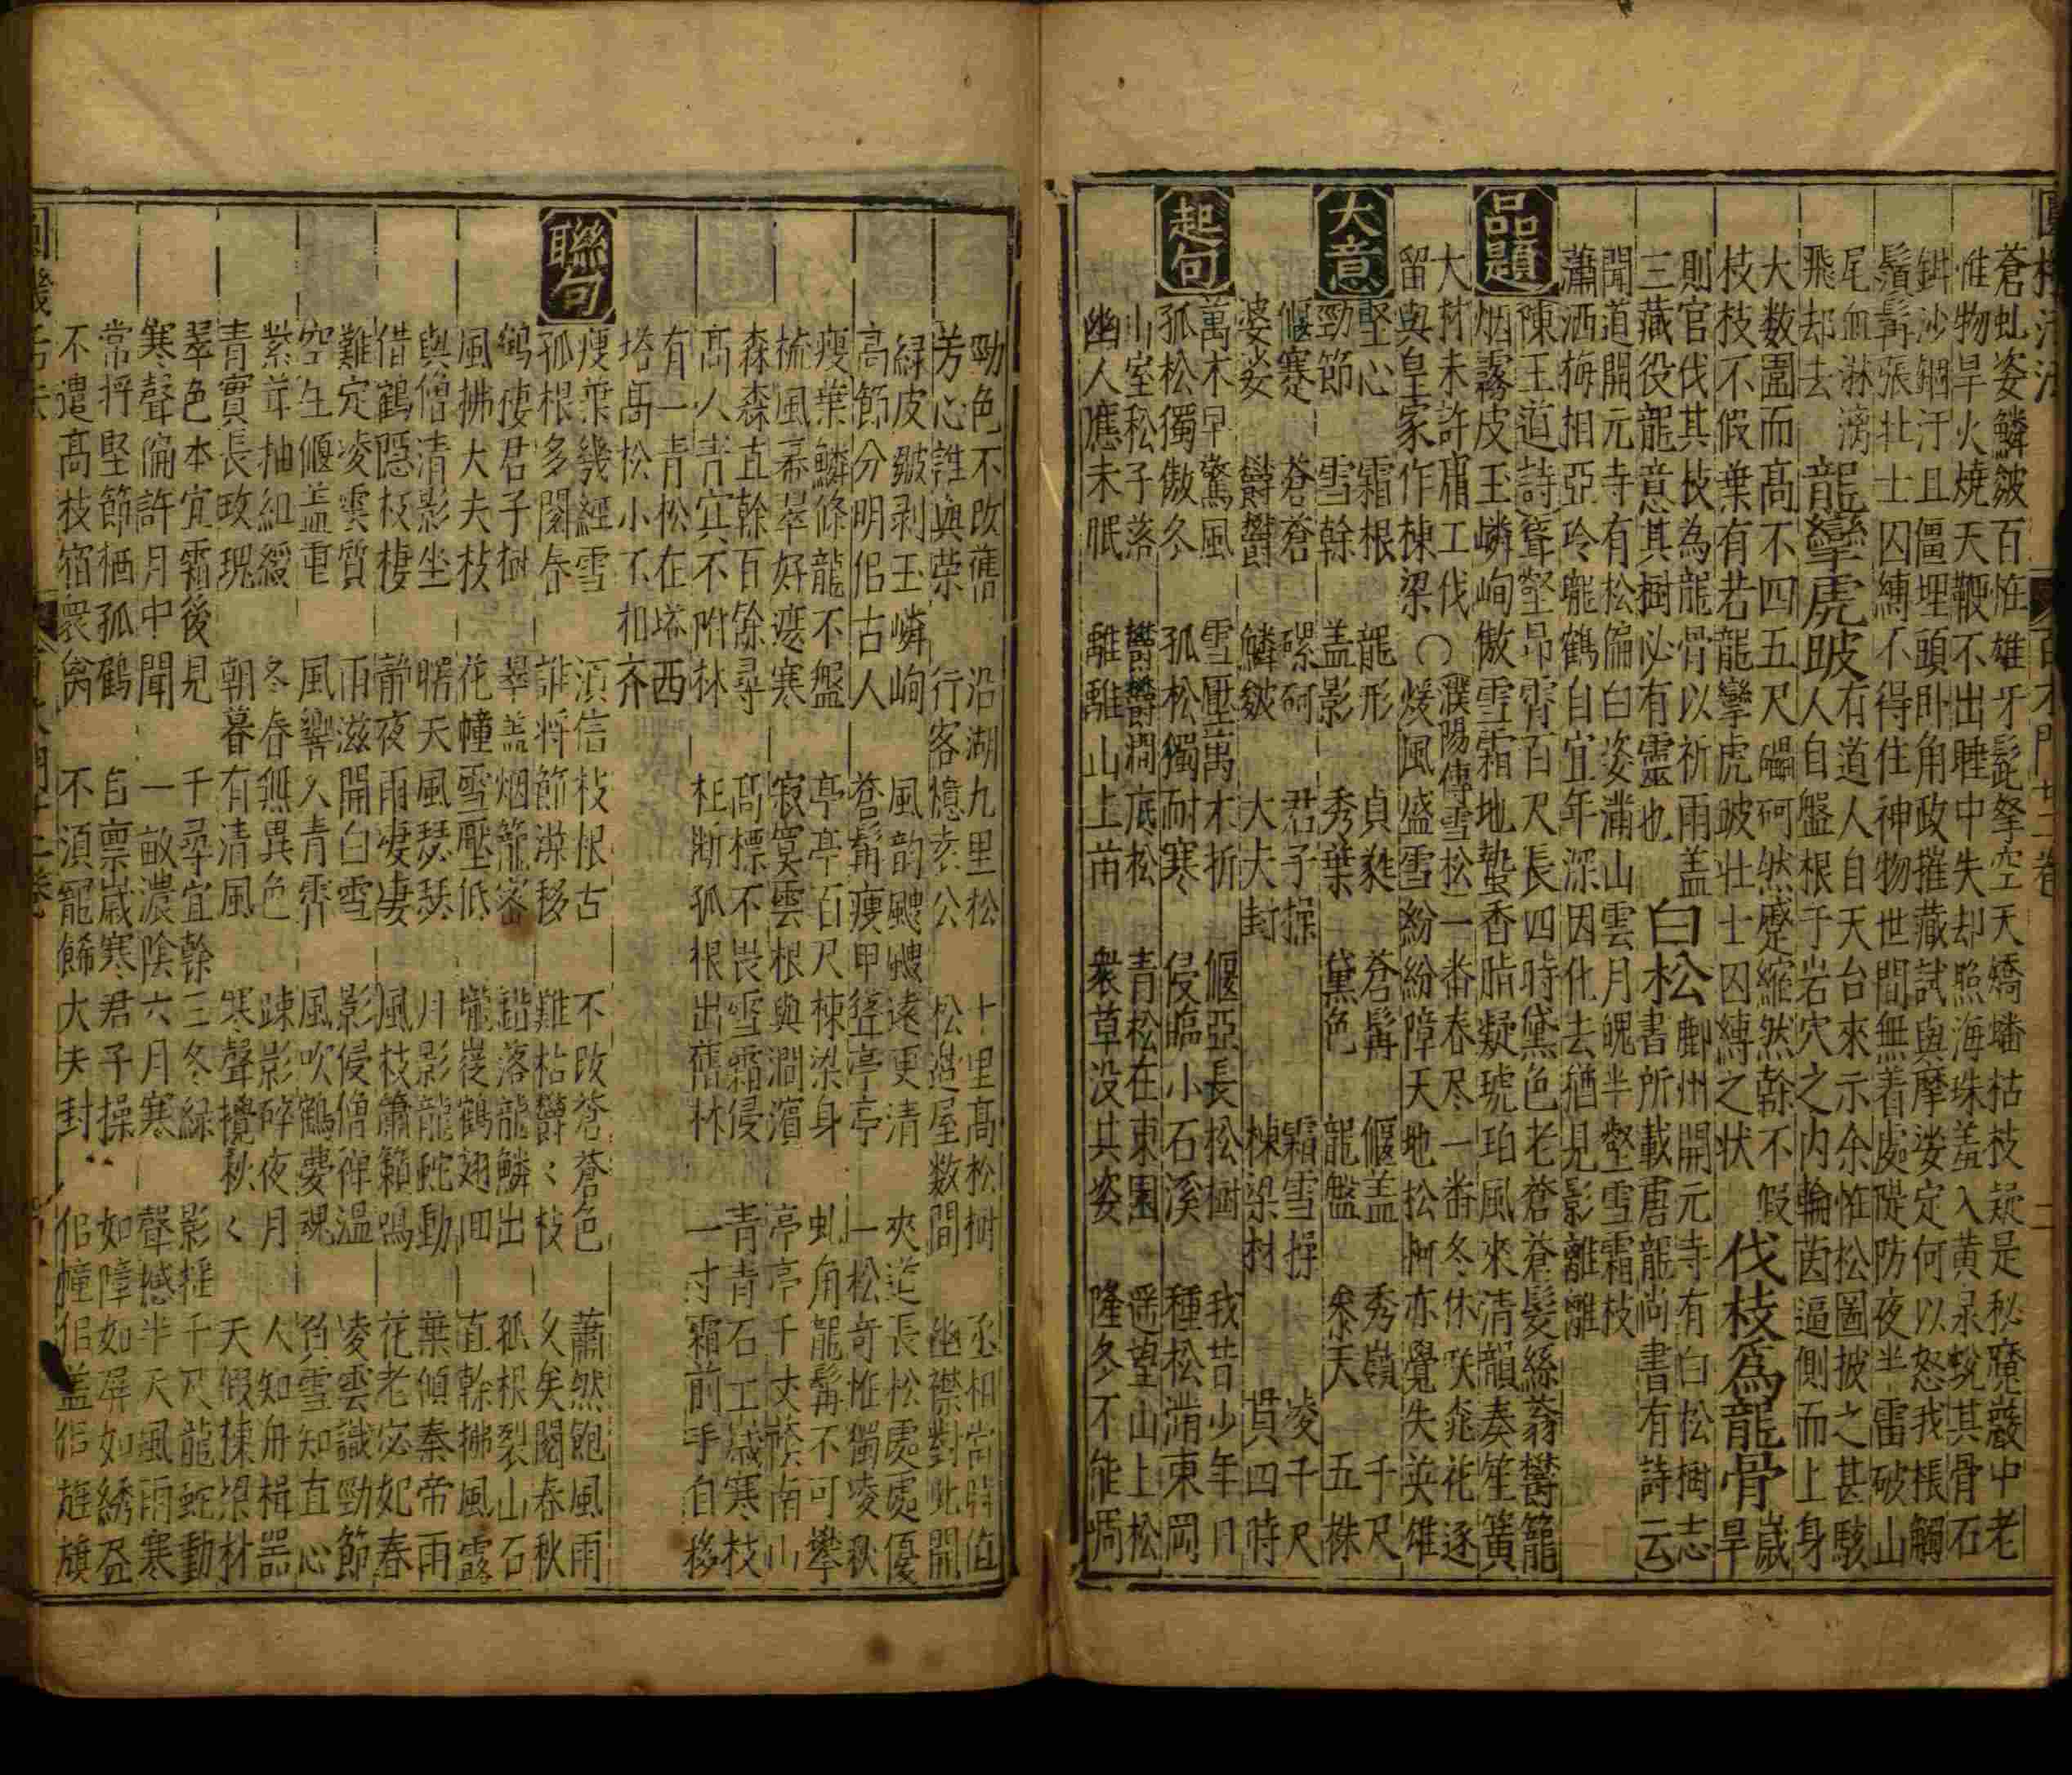 蒼虬姿鱗皴百怪雄牙髭拏空天矯蟠枯枝疑是秘魔巖中老
怪物旱火燒天鞭不出睡中失却照海珠羞入黄泉蛻其骨石
鉗沙錮汗且僵埋頭卧角政摧藏試與摩娑定何以怒我棖觸
鬚髯張壯士囚縛不得住神物世間無着處隄防夜半雷破山
尾血淋漓飛却去
龍孿虎跛
有道人自天台來示余怪松圖披之甚駭
人自盤根于岩穴之内輪囷逼側而上身
大数圍而髙不四五尺礧砢然蹙縮然幹不假
枝枝不假葉有若龍孿虎跛壯士囚縛之状
伐枝爲龍骨
歲旱
則官伐其枝為龍骨以祈雨蓋
三藏役龍意其樹必有靈也
白松
鄜州開元寺有白松樹志
書所載唐龍尚書有詩云
聞道開元寺有松偏白姿滿山雲月魄半壑雪霜枝
蕭洒梅相亞玲瓏鶴自宜年深因化去猶見影離離
品題
陳王道詩聳壑昂霄百尺長四時黛色老蒼蒼髮絲蓊鬱籠
烟霧皮玉嶙峋傲雪霜地蟄香脂凝琥珀風來清韻奏笙簧
大材未許庸工伐
留與皇家作棟梁〇
濮陽傳雪松
一番春尽一番冬休咲桃花逐
煖風盛雪紛紛障天地松柯亦覺失英雄
大意
堅心 霜根 龍形 貞蕤 蒼髯 偃盖 秀嶺 千尺
勁節 雪幹 盖影 秀葉 黛色 龍盤 叅天 五株
偃蹇 蒼蒼 磥砢 君子操 霜雪操 凌千尺
婆娑 欝欝 鱗皴 大夫封 棟梁材 貫四時
起句
萬木早驚風 雪壓萬木折 偃亞長松樹 我昔少年日
孤松獨傲冬 孤松獨耐寒 侵臨小石溪 種松滿東岡
山室松子落 欝欝澗底松 青松在東園 遥望山上松
幽人應未眠 離離山上苗 衆草没其姿 隆冬不能凋
勁色不改舊 沿湖九里松 十里髙松樹
芳心誰與榮 行客憶老公 松邉屋数間 幽襟對此開
緑皮皴剥玉嶙峋 風韵颼颼遠更清 夾道長松處處優
高節分明侣古人 蒼髯痩甲聳亭亭 一松竒怪獨凌秋
瘦葉鱗條龍不盤 亭亭百尺棟梁身 虬角龍髯不可攀
梳風幕翠好遮寒 寂寞雲根與澗濵 亭亭千丈蔭南山
森森直幹百餘尋 髙標不畏雪霜侵 青青石上歲寒枝
髙人青宾不附林 枉斷孤根出舊林 一寸霜前手自移
有一青松在塔西
塔髙松小不相齐
聯句
痩葉幾經雪 湏信枝根古 不改蒼蒼色 蕭然飽風雨
孤根多閲春 誰將節操移 難枯欝欝枝 久矣閲春秋
鶴棲君子樹 翠盖烟籠密 鉛落龍鱗出 孤根裂山石
風拂大夫枝 花幢雪壓低 巃嵸鶴翅回 直幹拂風露
與僧清影坐 曙天風瑟瑟 月影龍蛇動 葉傾秦帝雨
借鶴隱枝棲 静夜雨凄凄 風枝簫籟鳴 花老宓妃春
難定凌雲質 雨滋開白雪 影侵僧禅温 凌雲識勁節
空生偃盖重 風響久青霽 風吹鶴夢魂 負雪知直心
紫茸抽組綬 冬春無異色 踈影碎夜月 人知舟楫噐
青實長玫瑰 朝暮有清風 寒聲攪秋〻 天假棟梁材
翠色本宜霜後見 千尋宜幹三冬緑 影揺千尺龍蛇動
寒聲偏許月中聞 一畝濃陰六月寒 聲撼半天風雨寒
常将堅節栖孤鶴 自禀歲寒君子操 如障如屏如綉盈
不遣髙枝宿衆禽 不湏寵餙大夫封 佀幢佀盖佀旌旗